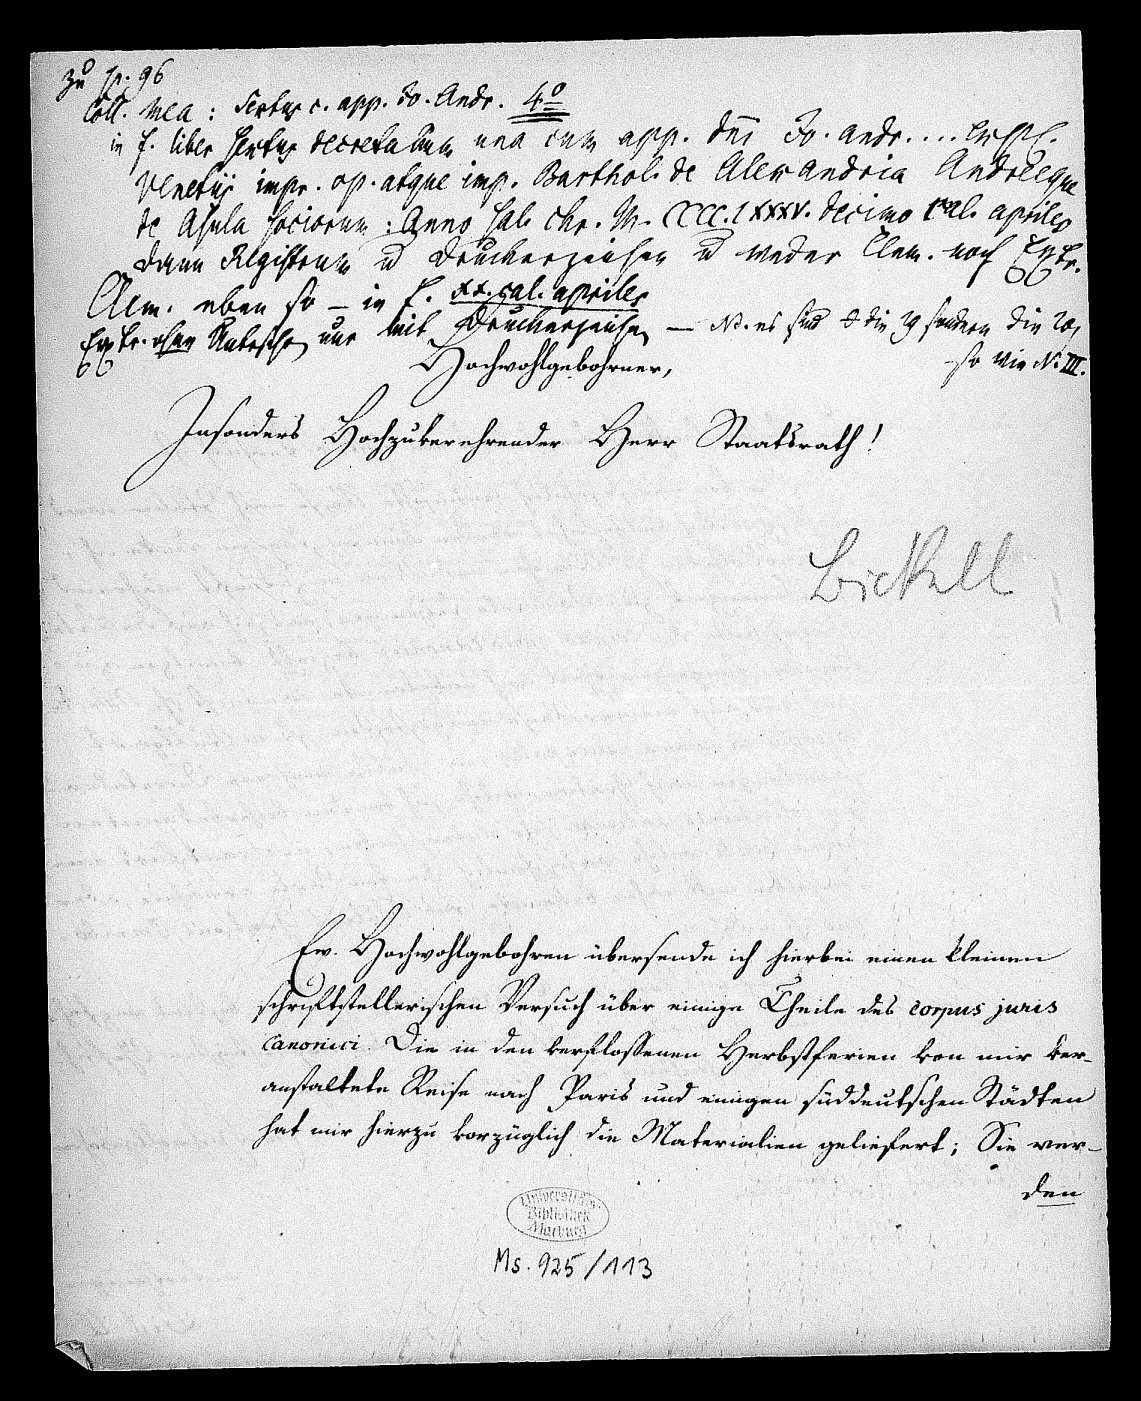 zu p. 96
Coll. mea: Sextus c. app. Jo. Andr. 4o
in f. liber sextus decretalium una cum app. dni Jo. andr. .... expl.
Venetijs impr. op. atque imp. Barthol. de Alexandria Andreeque
de Asula sociorum: Anno sal. chr. M. CCCC.LXXXV. decimo cal. apriles
dann Registrum u Druckerzeichen u weder Clem. noch Extr.
Clem. eben so – in f. xx. cal. apriles
Extr. ohne Unterschr. nur mit Druckerzeichen — NB. es sind die 29 sondern die 20,
so wie No. III.
Hochwohlgebohrner,
Insonders Hochzuverehrender Herr Staatsrath!
Bickell
Ew. Hochwohlgebohren übersende ich hierbei einen kleinen
schriftstellerischen Versuch über einige Theile des corpus juris
canonici. Die in den verfloßenen Herbstferien von mir ver-
anstaltete Reise nach Paris und einigen süddeutschen Städten
hat mir hierzu vorzüglich die Materialien geliefert; Sie wer-
den
Universitäts-
Bibliothek
Marburg
Ms. 925/113